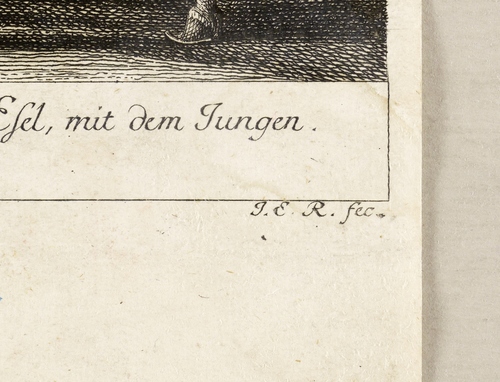 Esel, mit dem Jungen.
J. E. R. fec.